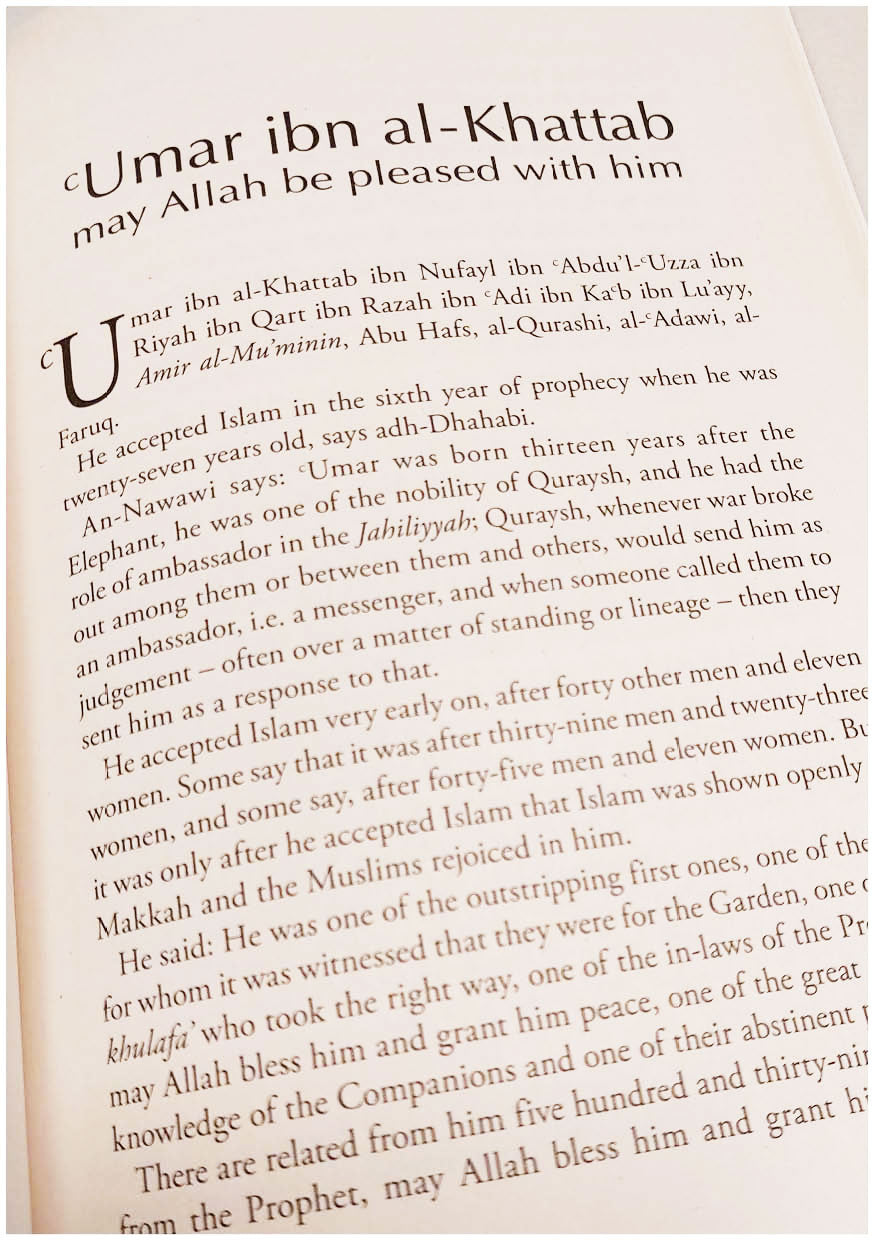 ᶜUmar ibn al-Khattab
may Allah be pleased with him
ᶜUmar ibn al-Khattab ibn Nufayl ibn ᶜAbdu'l-ᶜUzza ibn
Riyah ibn Qart ibn Razah ibn ᶜAdi ibn Kaᶜb ibn Lu'ayy,
Amir al-Mu'minin, Abu Hafs, al-Qurashi, al-ᶜAdawi, al-
Faruq.
He accepted Islam in the sixth year of prophecy when he was
twenty-seven years old, says adh-Dhahabi.
An-Nawawi says: ᶜUmar was born thirteen years after the
Elephant, he was one of the nobility of Quraysh, and he had the
role of ambassador in the Jahiliyyah; Quraysh, whenever war broke
out among them or between them and others, would send him as
an ambassador, i.e. a messenger, and when someone called them to
judgement – often over a matter of standing or lineage – then they
sent him as a response to that.
He accepted Islam very early on, after forty other men and eleven
women. Some say that it was after thirty-nine men and twenty-three
women, and some say, after forty-five men and eleven women. Bu
it was only after he accepted Islam that Islam was shown openly
Makkah and the Muslims rejoiced in him.
He said: He was one of the outstripping first ones, one of the
for whom it was witnessed that they were for the Garden, one
khulafa' who took the right way, one of the in-laws of the Pr
may Allah bless him and grant him peace, one of the great
knowledge of the Companions and one of their abstinent
There are related from him five hundred and thirty-nin
from the Prophet, may Allah bless him and grant hi